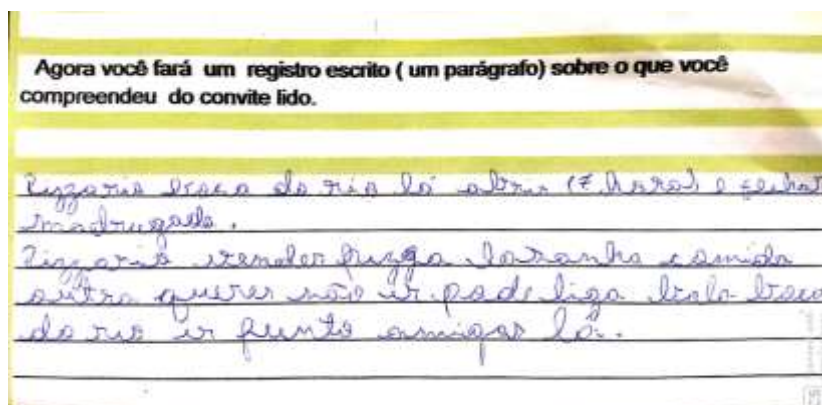 Agora você fará um registro escrito ( um parágrafo) sobre o que você
compreendeu do convite lido.
Pizzaria boca do rio lá abrir (7 hora) e fechar
madrugada.
Pizzaria vender pizza lasanha comida
outra querer não ir pode liga bolo boca
do rio ir junto amigas lá.